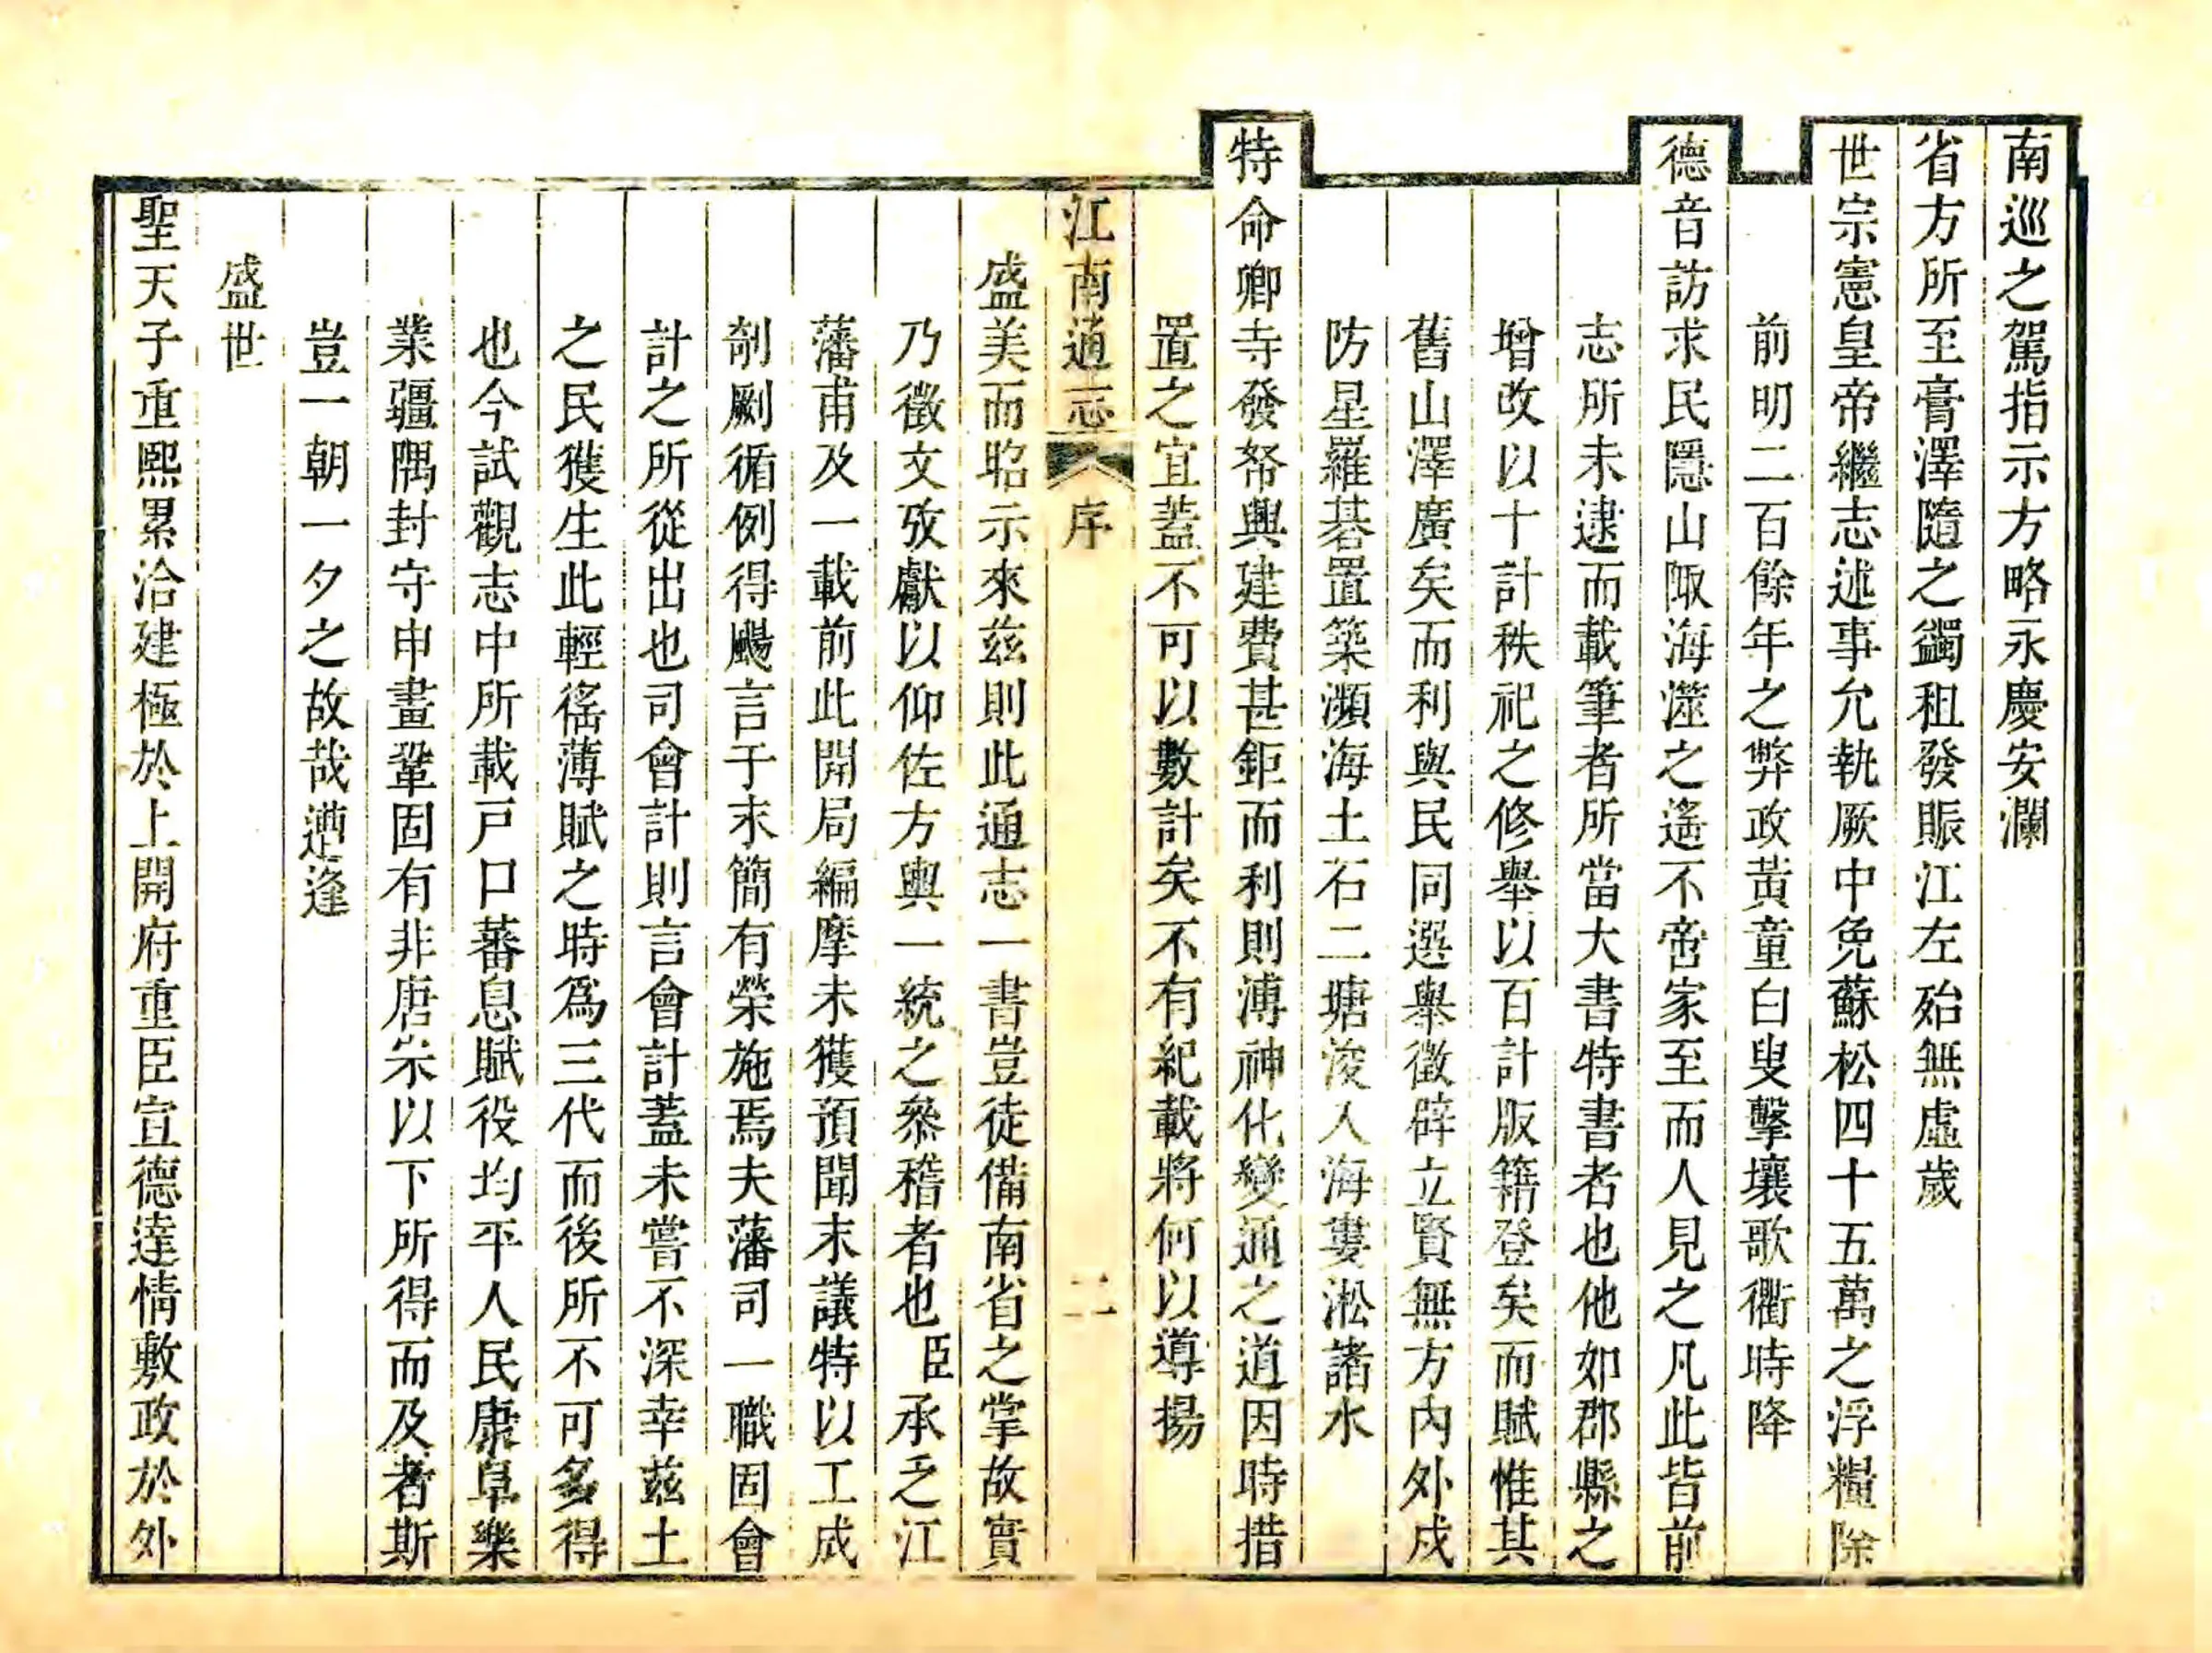 南巡之駕指示方略永慶安瀾
省方所至膏澤隨之蠲租發賑江左殆無虛歲
世宗憲皇帝繼志述事允執厥中免蘇松四十五萬之浮糧除
前明二百餘年之弊政黃童白叟擊壤歌衢時降
德音訪求民隱山陬海澨之遙不啻家至而人見之凡此皆前
志所未逮而載筆者所當大書特書者也他如郡縣之
增改以十計秩祀之修舉以百計版籍登矣而賦惟其
舊山澤廣矣而利與民同選舉徵辟立賢無方內外戍
防星羅碁置築瀕海土石二塘浚入海婁淞諸水
特命卿寺發帑興建費甚鉅而利則溥神化變通之道因時措
置之宜蓋不可以數計矣不有紀載將何以導揚
江南通志 序 二
盛美而昭示來茲則此通志一書豈徒備南省之掌故實
乃徵文攷獻以仰佐方輿一統之叅稽者也臣承乏江
藩甫及一載前此開局編摩未獲預聞末議特以工成
剞劂循例得颺言于末簡有榮施焉夫藩司一職固會
計之所從出也司會計則言會計蓋未嘗不深幸茲土
之民獲生此輕徭薄賦之時爲三代而後所不可多得
也今試觀志中所載戸口蕃息賦役均平人民康阜樂
業疆隅封守申畫鞏固有非唐宋以下所得而及者斯
豈一朝一夕之故哉遭逢
盛世
聖天子重熙累洽建極於上開府重臣宣德達情敷政於外